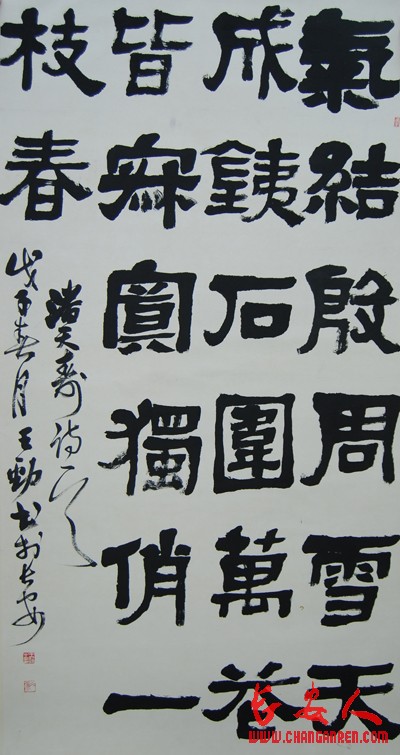 氣結殷周雪天
成銕石圍萬花
皆寂寞獨俏一
枝春
潘天寿诗一首
戊子春月王勁书於长安
长安人
WWW.CHANGANREN.COM